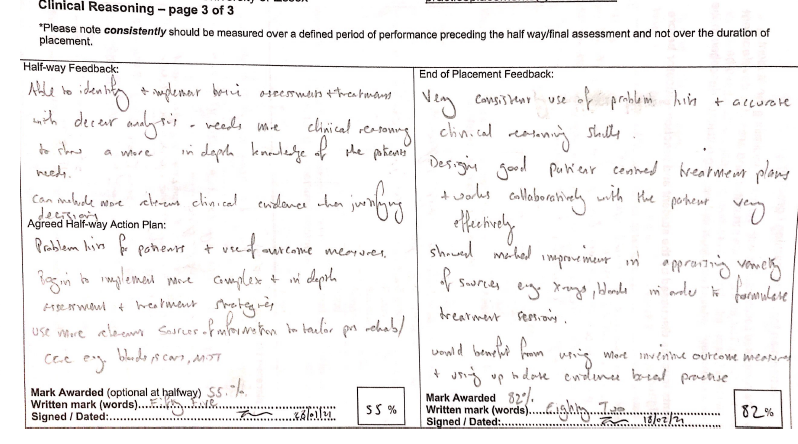 Clinical Reasoning – page 3 of 3
*Please note consistently should be measured over a defined period of performance preceding the half way/final assessment and not over the duration of
placement.
Half-way Feedback:
Able to identify + implement basic assessments + treatments
with decent analysis - needs more clinical reasoning
to show a more in depth knowledge of the patients
needs.
Can include more relevant clinical evidence when justifying
decisions
Agreed Half-way Action Plan:
Problem lists for patients + use of outcome measures.
Begin to implement more complex + in depth
assessment + treatment strategies
Use more relevant sources of information to tailor pts rehab/
care e.g. bloods, scans, MDT
Mark Awarded (optional at halfway) 55 %
Written mark (words) Fifty Five
Signed / Dated: /21
55 %
End of Placement Feedback:
Very consistent use of problem lists + accurate
clinical reasoning skills.
Designs good patient centred treatment plans
+ works collaboratively with the patient very
effectively
showed marked improvement in appraising variety
of sources e.g. xrays, bloods in order to formulate
treatment sessions.
would benefit from using more inventive outcome measures
+ using up to date evidence based practice
Mark Awarded 82%
Written mark (words) Eighty Two
Signed / Dated: 18/02/21
82 %